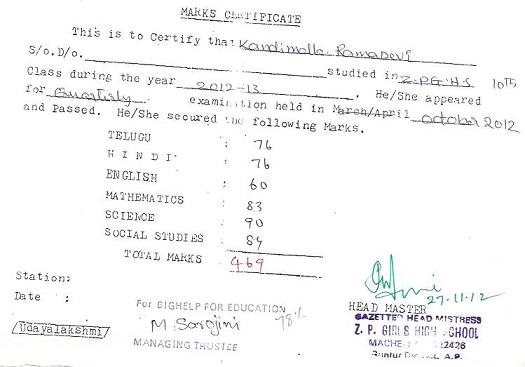 MARKS CERTIFICATE
This is to Certify that Kandimalla Ramadevi
S/o.D/o. studied in Z.P.G.H.S 10TH
Class during the year 2012-13. He/She appeared
for Quarterly examination held in March/April october 2012
and Passed. He/She secured the following Marks.
TELUGU : 76
HINDI : 76
ENGLISH : 60
MATHEMATICS : 83
SCIENCE : 90
SOCIAL STUDIES : 84
TOTAL MARKS 469
Station:
Date :
/Udayalakshmi/
For BIGHELP FOR EDUCATION 78%
M. Sarojini
MANAGING TRUSTEE
27.11.12
HEAD MASTER
GAZETTED HEAD MISTRESS
Z. P. GIRLS HIGH SCHOOL
Guntur A.P.